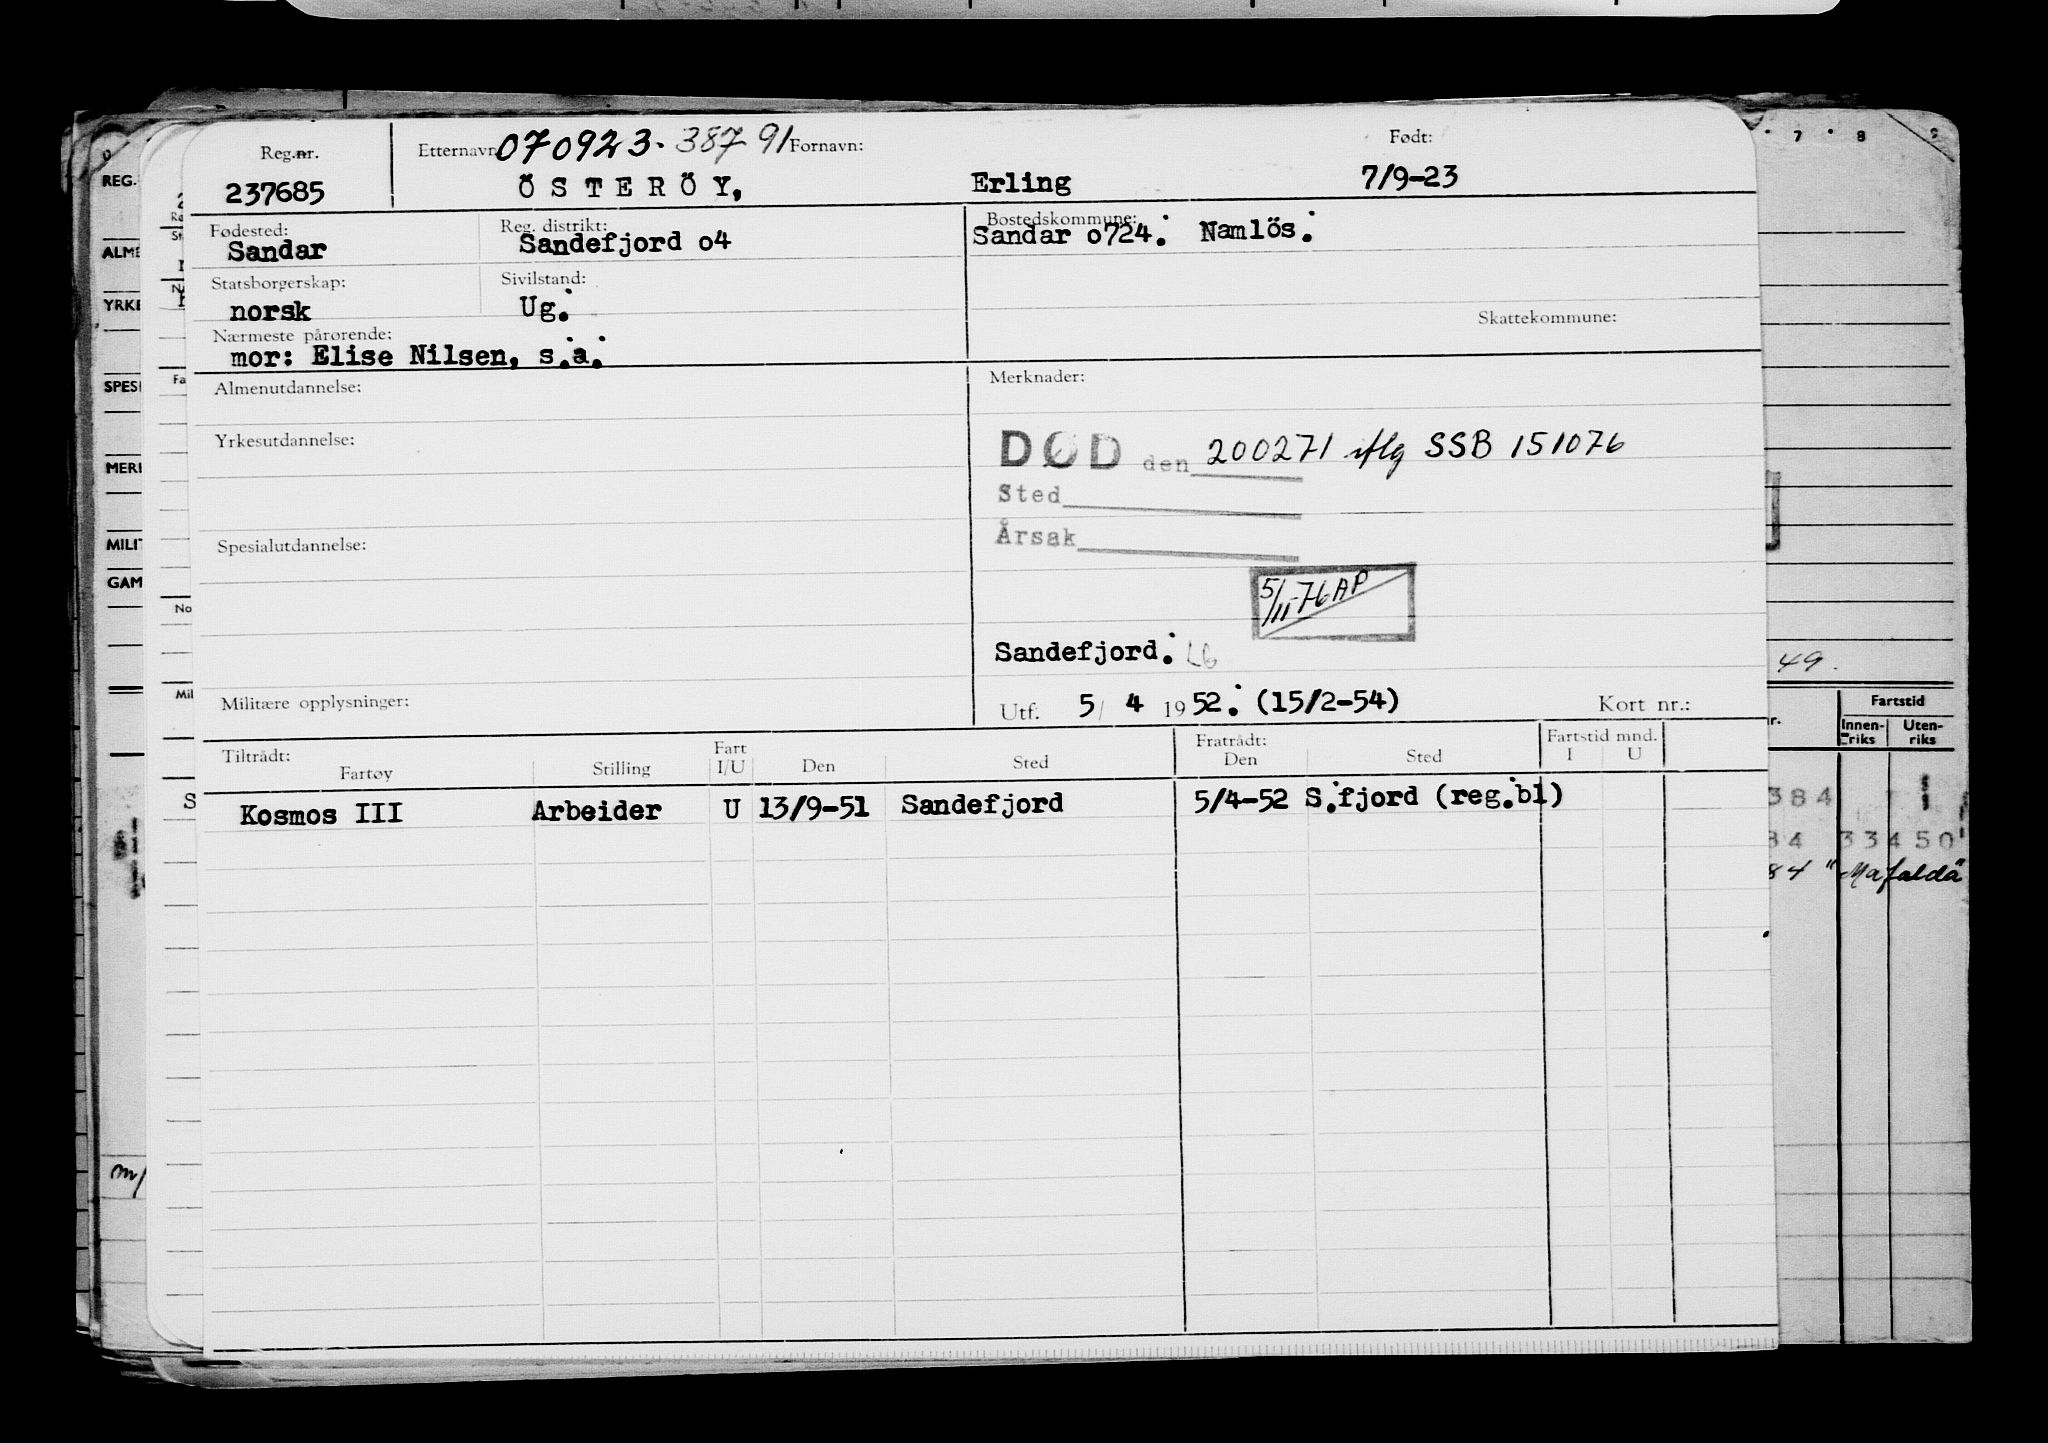 Reg.nr. Etternavn 070923. 387 91 Fornavn: Født:
237685 ÖSTERÖY, Erling 7/9-23
Fødested: Reg. distrikt: Bostedskommune:
Sandar Sandefjord o4 Sandar o724. Namlös.
Statsborgerskap: Sivilstand:
norsk Ug.
Skattekommune:
Nærmeste pårørende:
mor: Elise Nilsen, s.a.
Almenutdannelse: Merknader:
Yrkesutdannelse:
DØD den 200271 iflg SSB 151076
Sted
Årsak
Spesialutdannelse:
5/11-76 AP
Sandefjord. LG
Militære opplysninger: Utf. 5/ 4 1952. (15/2-54) Kort nr.:
Tiltrådt: Fart Fratrådt: Fartstid mnd.
Fartøy Stilling I/U Den Sted Den Sted I U
Kosmos III Arbeider U 13/9-51 Sandefjord 5/4-52 S.fjord (reg.bl)
REG.
ALME
YRKE
SPESI
MERI
MILIT
GAM
Fa
No
Mil
S
m/
7 8 9
49.
Fartstid
Innen-riks Uten-riks
384
84 33450
84 "Mafalda"